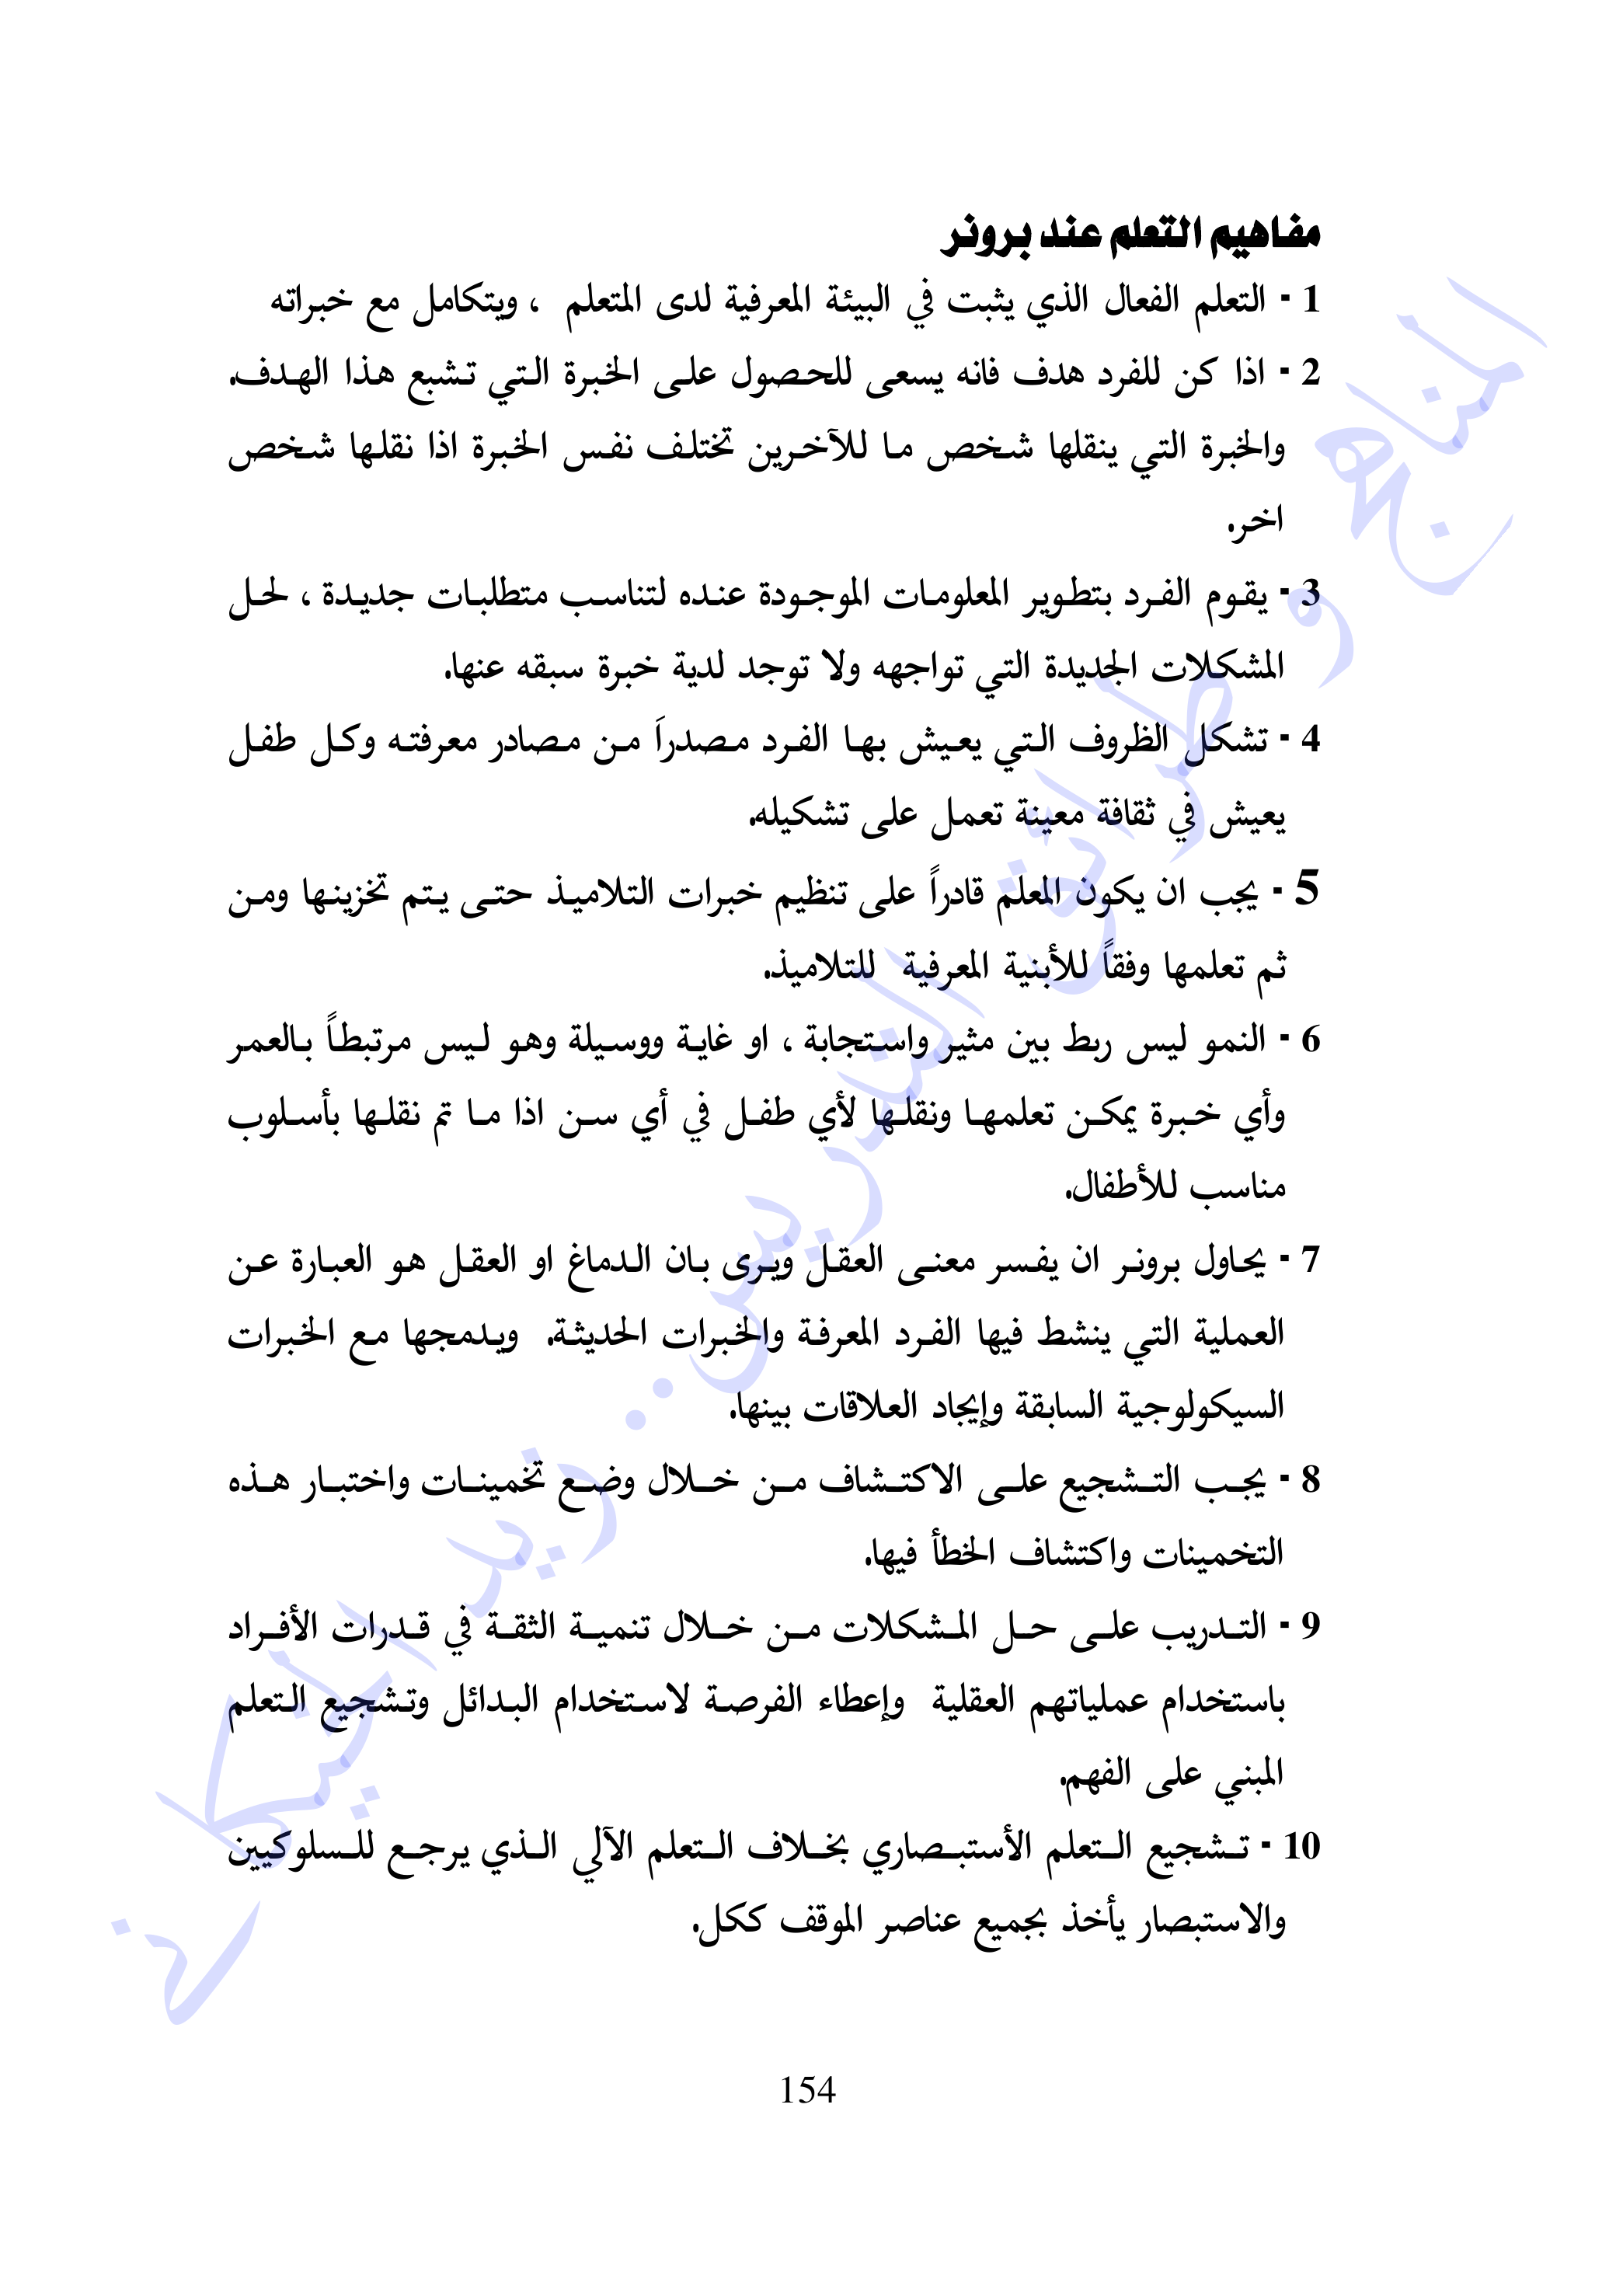 مفاهيم التعلم عند برونر
1 - التعلم الفعال الذي يثبت في البيئة المعرفية لدى المتعلم ، ويتكامل مع خبراته
2 - اذا كن للفرد هدف فانه يسعى للحصول على الخبرة التي تشبع هذا الهدف.
والخبرة التي ينقلها شخص ما للآخرين تختلف نفس الخبرة اذا نقلها شخص
اخر.
3 - يقوم الفرد بتطوير المعلومات الموجودة عنده لتناسب متطلبات جديدة ، لحل
المشكلات الجديدة التي تواجهه ولا توجد لدية خبرة سبقه عنها.
4 - تشكل الظروف التي يعيش بها الفرد مصدراَ من مصادر معرفته وكل طفل
يعيش في ثقافة معينة تعمل على تشكيله.
5 - يجب ان يكون المعلم قادراً على تنظيم خبرات التلاميذ حتى يتم تخزينها ومن
ثم تعلمها وفقاً للأبنية المعرفية للتلاميذ.
6 - النمو ليس ربط بين مثير واستجابة ، او غاية ووسيلة وهو ليس مرتبطاً بالعمر
وأي خبرة يمكن تعلمها ونقلها لأي طفل في أي سن اذا ما تم نقلها بأسلوب
مناسب للأطفال.
7 - يحاول برونر ان يفسر معنى العقل ويرى بان الدماغ او العقل هو العبارة عن
العملية التي ينشط فيها الفرد المعرفة والخبرات الحديثة. ويدمجها مع الخبرات
السيكولوجية السابقة وإيجاد العلاقات بينها.
8 - يجب التشجيع على الاكتشاف من خلال وضع تخمينات واختبار هذه
التخمينات واكتشاف الخطأ فيها.
9 - التدريب على حل المشكلات من خلال تنمية الثقة في قدرات الأفراد
باستخدام عملياتهم العقلية وإعطاء الفرصة لاستخدام البدائل وتشجيع التعلم
المبني على الفهم.
10 - تشجيع التعلم الأستبصاري بخلاف التعلم الآلي الذي يرجع للسلوكيين
والاستبصار يأخذ بجميع عناصر الموقف ككل.
154